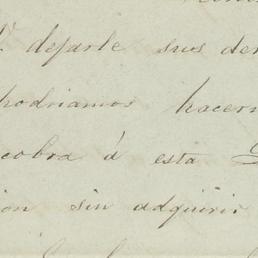 dejarle sus der
podriamos hacern
cobra á esta
ion sin adquirir